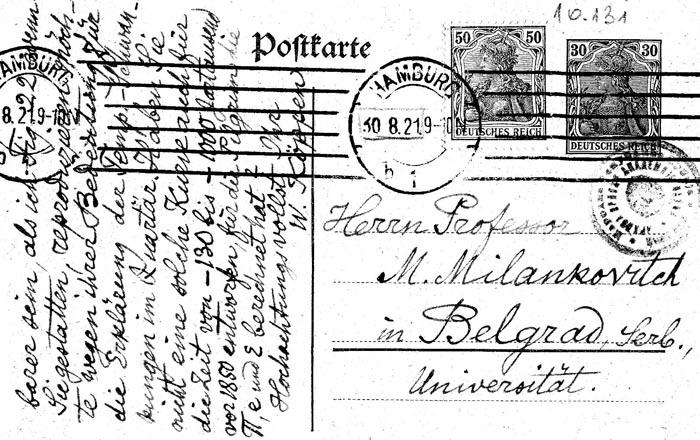 10.131
Postkarte
HAMBURG
8.21.9-10
HAMBURG
30.8.21.9-10
b 1
50 50
DEUTSCHES REICH
30 30
DEUTSCHES REICH
Herrn Professor
M. Milankovitch
in Belgrad, Serb.,
Universität.
barer sein, als ich Fig. 22, wenn
Sie gestatten, reproduzieren möch-
te wegen ihrer Bedeutung für
die Erklärung der Temp.-Schwan-
kungen im Quartär. Haben Sie
nicht eine solche Kurve auch für
die Zeit von -130 bis -1000 Jahrtausend
vor 1850 entworfen, für die Pilgrim die
Π, e und ε berechnet hat?
Hochachtungsvollst Ihr
W. Köppen